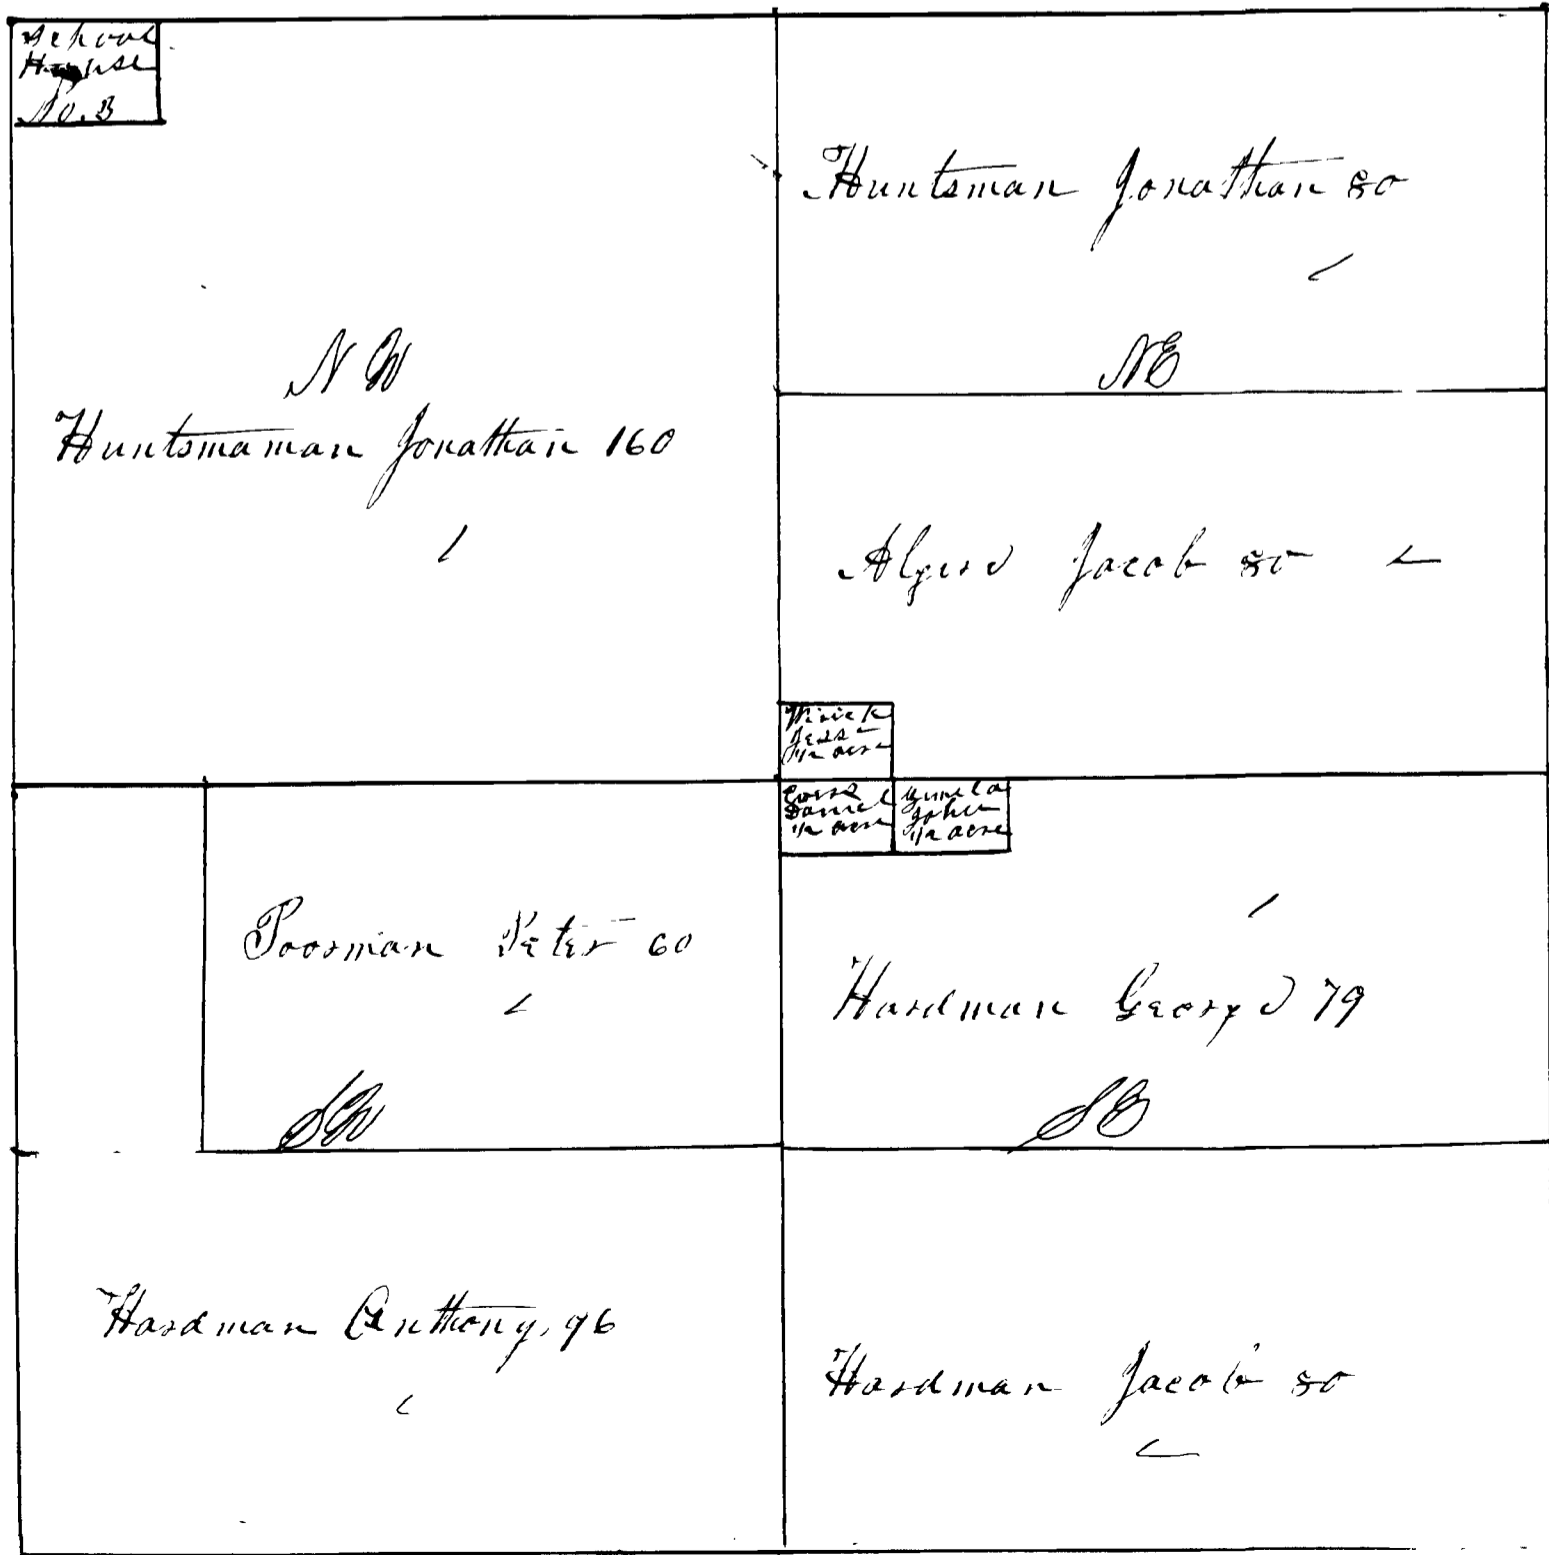 School
House
No. 3
N W
Huntsmaman Jonathan 160
Huntsman Jonathan 80
NE
Jacob 80
Jesse
1/2 acre
Daniel
1/2 acre
John
1/2 acre
Poorman Peter 60
SW
Hardman George 79
SE
Hardman Anthony, 96
Hardman Jacob 80